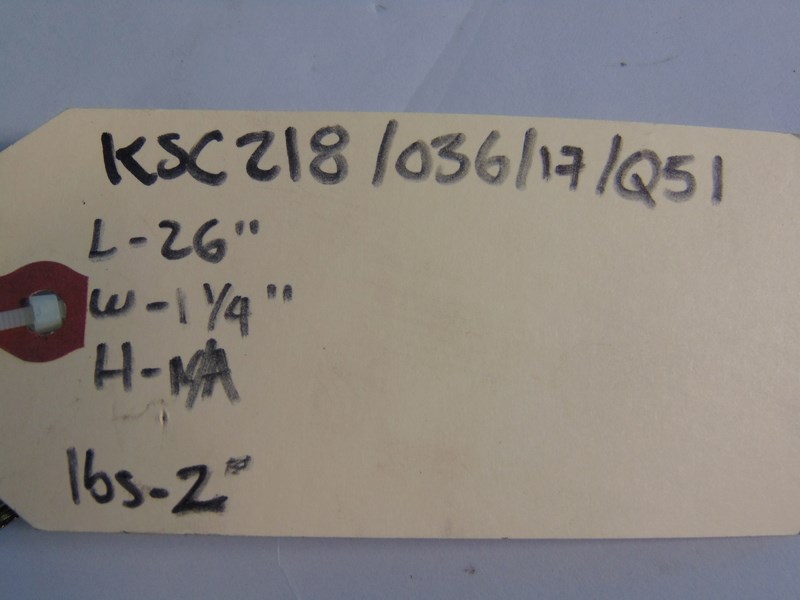 KSC218/036/17/Q51
L-26"
W-1 1/4"
H-N/A
lbs-2#